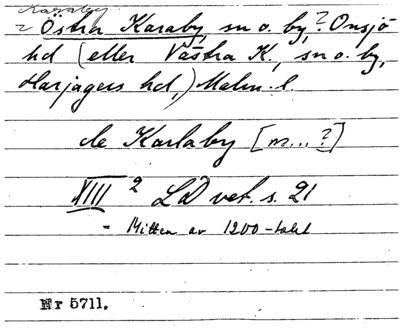 Karaby
? Östra Karaby, sn o. by, ? Onsjö
hd (eller Västra K., sn o. by,
Harjagers hd,) Malm. l.
de Karlaby [m...?]
XIII 2 LD vet. s. 21
- Mitten av 1200-talet
Nr 5711.